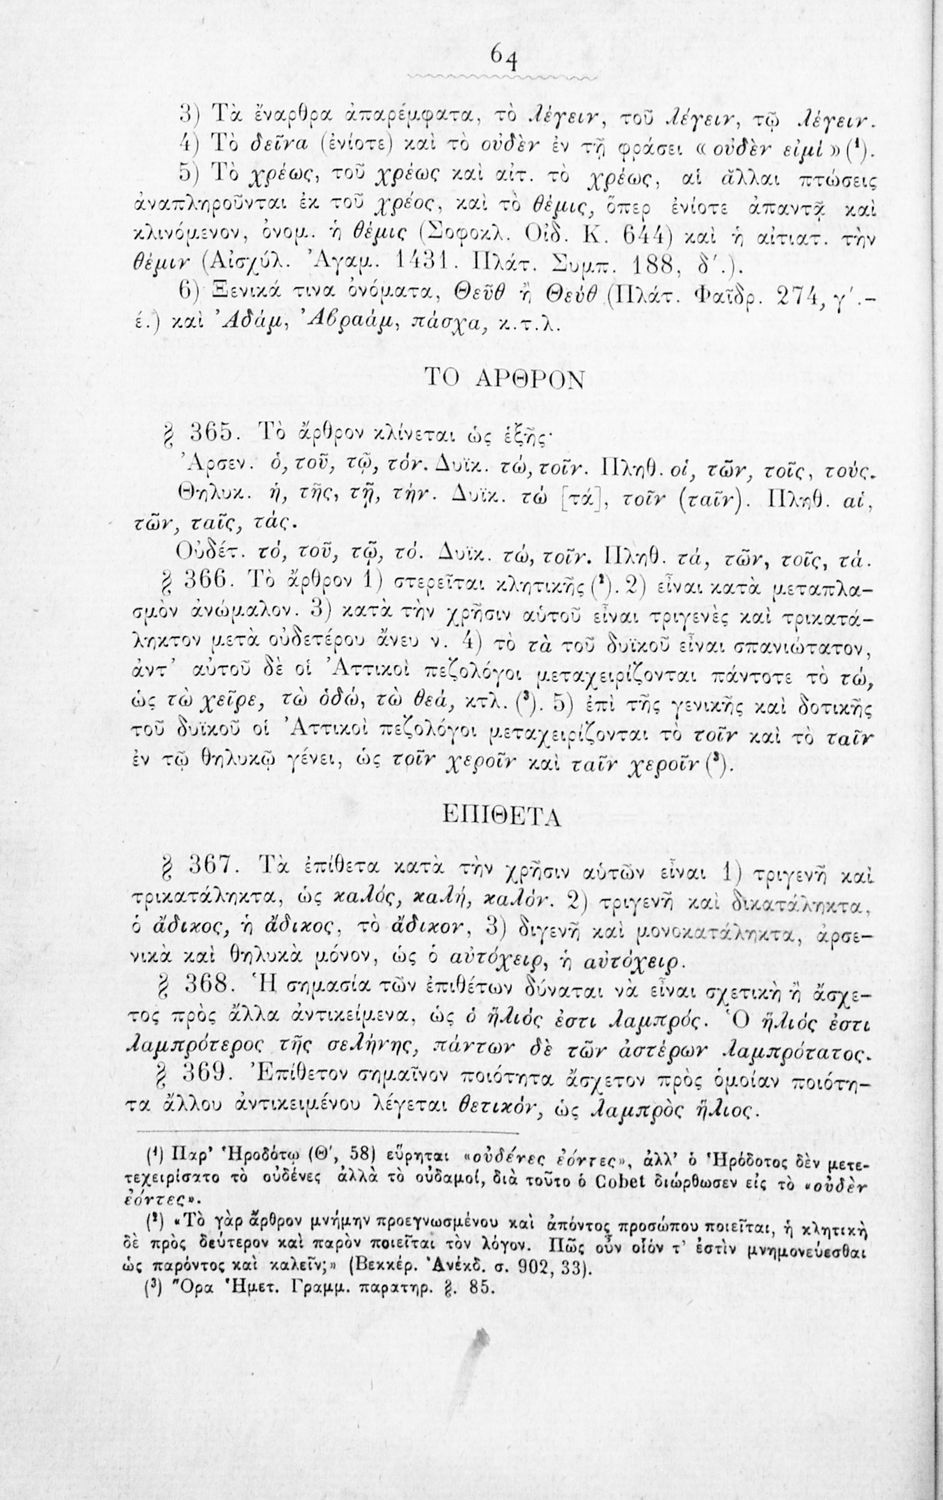 64
3) Τὰ ἔναρθρα ἀπαρέμφατα, τὸ λέγειν, τοῦ λέγειν, τῷ λέγειν.
4) Τὸ δεῖνα (ἐνίοτε) καὶ τὸ οὐδὲν ἐν τῇ φράσει « οὐδὲν εἰμί » (¹).
5) Τὸ χρέως, τοῦ χρέως καὶ αἰτ. τὸ χρέως, αἱ ἄλλαι πτώσεις
ἀναπληροῦνται ἐκ τοῦ χρέος, καὶ τὸ θέμις, ὅπερ ἐνίοτε ἀπαντᾷ καὶ
κλινόμενον, ὀνομ. ἡ θέμις (Σοφοκλ. Οἰδ. Κ. 644) καὶ ἡ αἰτιατ. τὴν
θέμιν (Αἰσχύλ. Ἀγαμ. 1431. Πλάτ. Συμπ. 188, δ΄.).
6) Ξενικά τινα ὀνόματα, Θεῦθ ἢ Θεύθ (Πλάτ. Φαῖδρ. 274, γ΄.–
έ.) καὶ Ἀδάμ, Ἀβραάμ, πάσχα, κ.τ.λ.
ΤΟ ΑΡΘΡΟΝ
§ 365. Τὸ ἄρθρον κλίνεται ὡς ἑξῆς·
Ἀρσεν. ὁ, τοῦ, τῷ, τόν. Δυϊκ. τώ, τοῖν. Πληθ. οἱ, τῶν, τοῖς, τούς.
Θηλυκ. ἡ, τῆς, τῇ, τήν. Δυϊκ. τώ [τά], τοῖν (ταῖν). Πληθ. αἱ,
τῶν, ταῖς, τάς.
Οὐδέτ. τό, τοῦ, τῷ, τό. Δυϊκ. τώ, τοῖν. Πληθ. τά, τῶν, τοῖς, τά.
§ 366. Τὸ ἄρθρον 1) στερεῖται κλητικῆς (²). 2) εἶναι κατὰ μεταπλα–
σμὸν ἀνώμαλον. 3) κατὰ τὴν χρῆσιν αὑτοῦ εἶναι τριγενὲς καὶ τρικατά–
ληκτον μετὰ οὐδετέρου ἄνευ ν. 4) τὸ τὰ τοῦ δυϊκοῦ εἶναι σπανιώτατον,
ἀντ' αὐτοῦ δὲ οἱ Ἀττικοὶ πεζολόγοι μεταχειρίζονται πάντοτε τὸ τώ,
ὡς τὼ χεῖρε, τὼ ὁδώ, τὼ θεά, κτλ. (³). 5) ἐπὶ τῆς γενικῆς καὶ δοτικῆς
τοῦ δυϊκοῦ οἱ Ἀττικοὶ πεζολόγοι μεταχειρίζονται τὸ τοῖν καὶ τὸ ταῖν
ἐν τῷ θηλυκῷ γένει, ὡς τοῖν χεροῖν καὶ ταῖν χεροῖν (³).
ΕΠΙΘΕΤΑ
§ 367. Τὰ ἐπίθετα κατὰ τὴν χρῆσιν αὑτῶν εἶναι 1) τριγενῆ καὶ
τρικατάληκτα, ὡς καλός, καλή, καλόν. 2) τριγενῆ καὶ δικατάληκτα,
ὁ ἄδικος, ἡ ἄδικος, τὸ ἄδικον, 3) διγενῆ καὶ μονοκατάληκτα, ἀρσε–
νικὰ καὶ θηλυκὰ μόνον, ὡς ὁ αὐτόχειρ, ἡ αὐτόχειρ.
§ 368. Ἡ σημασία τῶν ἐπιθέτων δύναται νὰ εἶναι σχετικὴ ἢ ἄσχε–
τος πρὸς ἄλλα ἀντικείμενα, ὡς ὁ ἥλιός ἐστι λαμπρός. Ὁ ἥλιός ἐστι
λαμπρότερος τῆς σελήνης, πάντων δὲ τῶν ἀστέρων λαμπρότατος.
§ 369. Ἐπίθετον σημαῖνον ποιότητα ἄσχετον πρὸς ὁμοίαν ποιότη–
τα ἄλλου ἀντικειμένου λέγεται θετικόν, ὡς λαμπρὸς ἥλιος.
(¹) Παρ' Ἡροδότῳ (Θ΄, 58) εὕρηται «οὐδένες ἐόντες», ἀλλ' ὁ Ἡρόδοτος δὲν μετε–
τεχειρίσατο τὸ οὐδένες ἀλλὰ τὸ οὐδαμοί, διὰ τοῦτο ὁ Cobet διώρθωσεν εἰς τὸ «οὐδὲν
ἐόντες».
(²) «Τὸ γὰρ ἄρθρον μνήμην προεγνωσμένου καὶ ἀπόντος προσώπου ποιεῖται, ἡ κλητικὴ
δὲ πρὸς δεύτερον καὶ παρὸν ποιεῖται τὸν λόγον. Πῶς οὖν οἷόν τ' ἐστὶν μνημονεύεσθαι
ὡς παρόντος καὶ καλεῖν;» (Βεκκέρ. Ἀνέκδ. σ. 902, 33).
(³) Ὅρα Ἡμετ. Γραμμ. παρατηρ. §. 85.